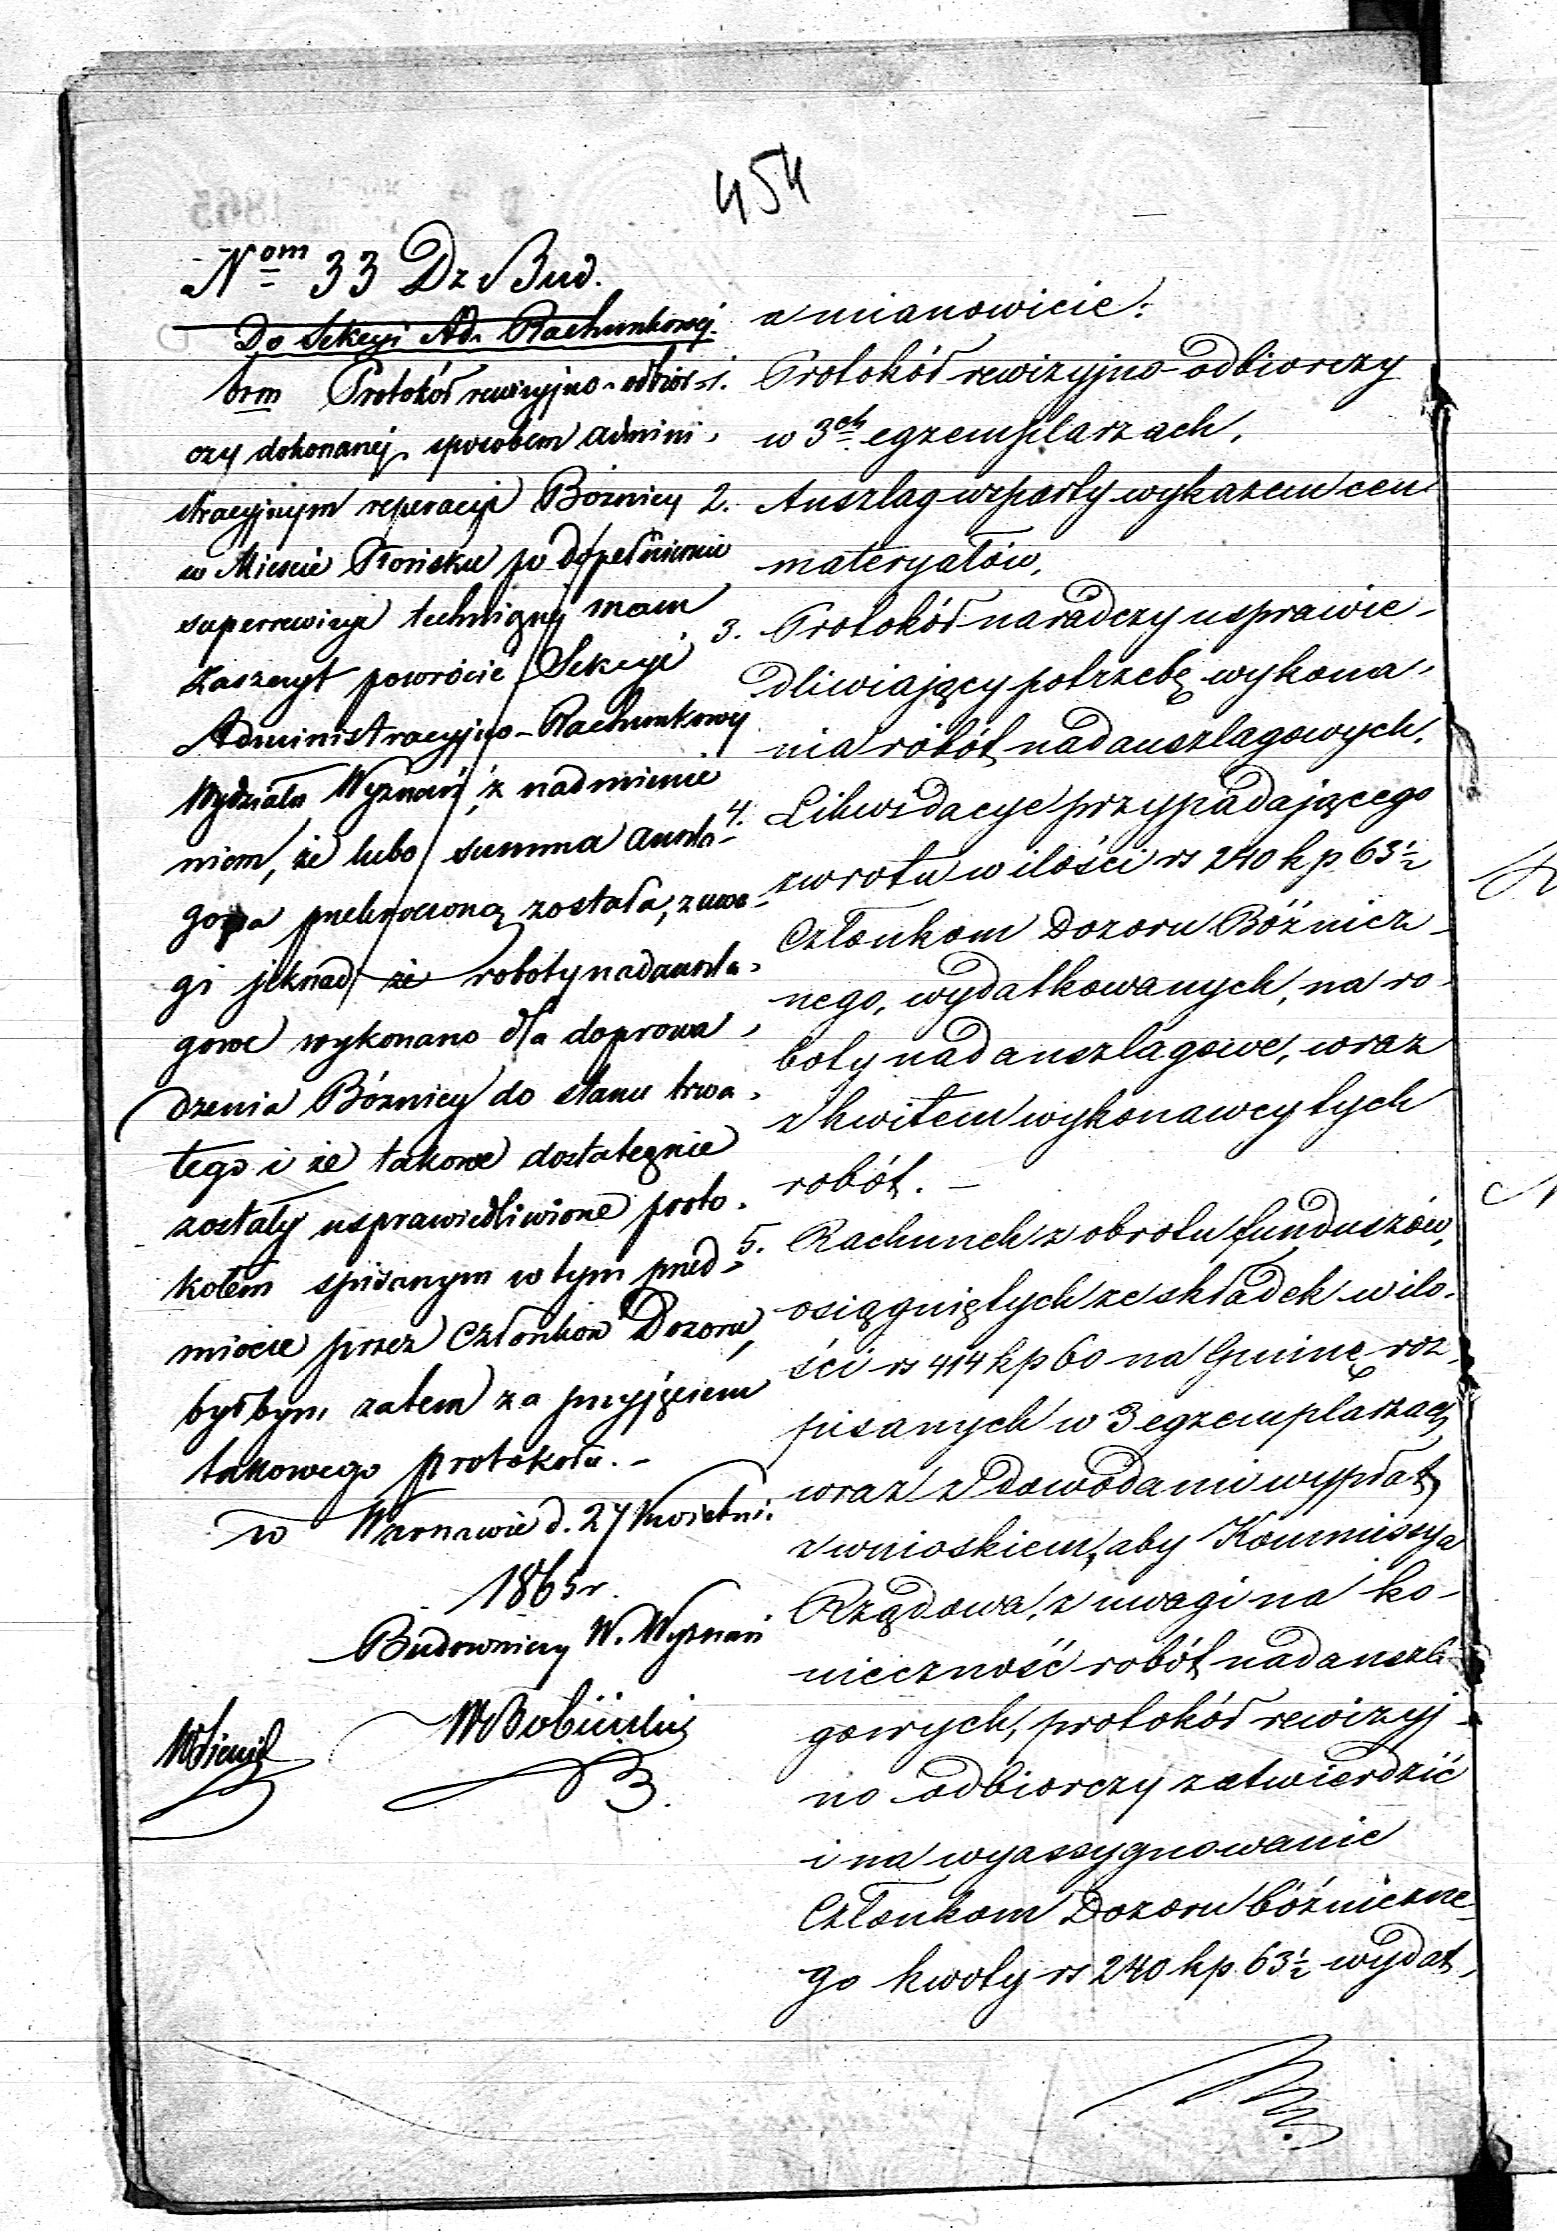 454
Nom 33 Dz Bud.
Do Sekcyi Ad. Rachunkowej.
brm Protokół rewizyjno-odbior-
czy dokonanej sposobem admini-
stracyjnym reperacyi Bóżnicy
w Mieście Płońsku po dopełnieniu
superrewizyi technicznej mam
zaszczyt powrócić Sekcyi
Administracyjno-Rachunkowej
Wydziału Wyznań, z nadmienie
niem, że lubo summa anszla-
gowa przekroczoną została, z uwa-
gi jeknad że roboty nadanszla-
gowe wykonano dla doprowa-
dzenia Bóżnicy do stanu trwa-
łego i że takowe dostatecznie
zostały usprawiedliwione proto-
kółem spisanym w tym przed-
miocie przez Członków Dozoru,
byłbym zatem za przyjęciem
takowego protokołu. -
w Warszawie d. 27 Kwietni.
1865 r.
Budowniczy W. Wyznań
a mianowicie:
1. Protokół rewizyjno-odbiorczy
w 3ch egzemplarzach,
2. Anszlag wsparty wykazem cen
materyałów,
3. Protokół naradczy usprawie-
dliwiający potrzebę wykona-
nia robót nadanszlagowych.
4. Likwidacye przypadającego
zwrotu w ilości rs 240 kp 63½
Członkom Dozoru Bóżnicz-
nego, wydatkowanych, na ro-
boty nadanszlagowe, wraz
z kwitem wykonawcy tych
robót. -
5. Rachunek z obrotu funduszów,
osiągniętych ze składek w ilo-
ści rs 414 kp 60 na Gminę roz-
pisanych w 3 egzemplarzach
wraz z dowodami wypłat,
z wnioskiem, aby Kommissya
Rządowa, z uwagi na ko-
nieczność robót nadanszla-
gowych, protokół rewizyj-
no odbiorczy zatwierdzić
i na wyassygnowanie
Członkom Dozoru bóżniczne-
go kwoty rs 240 kp. 63½ wydat-